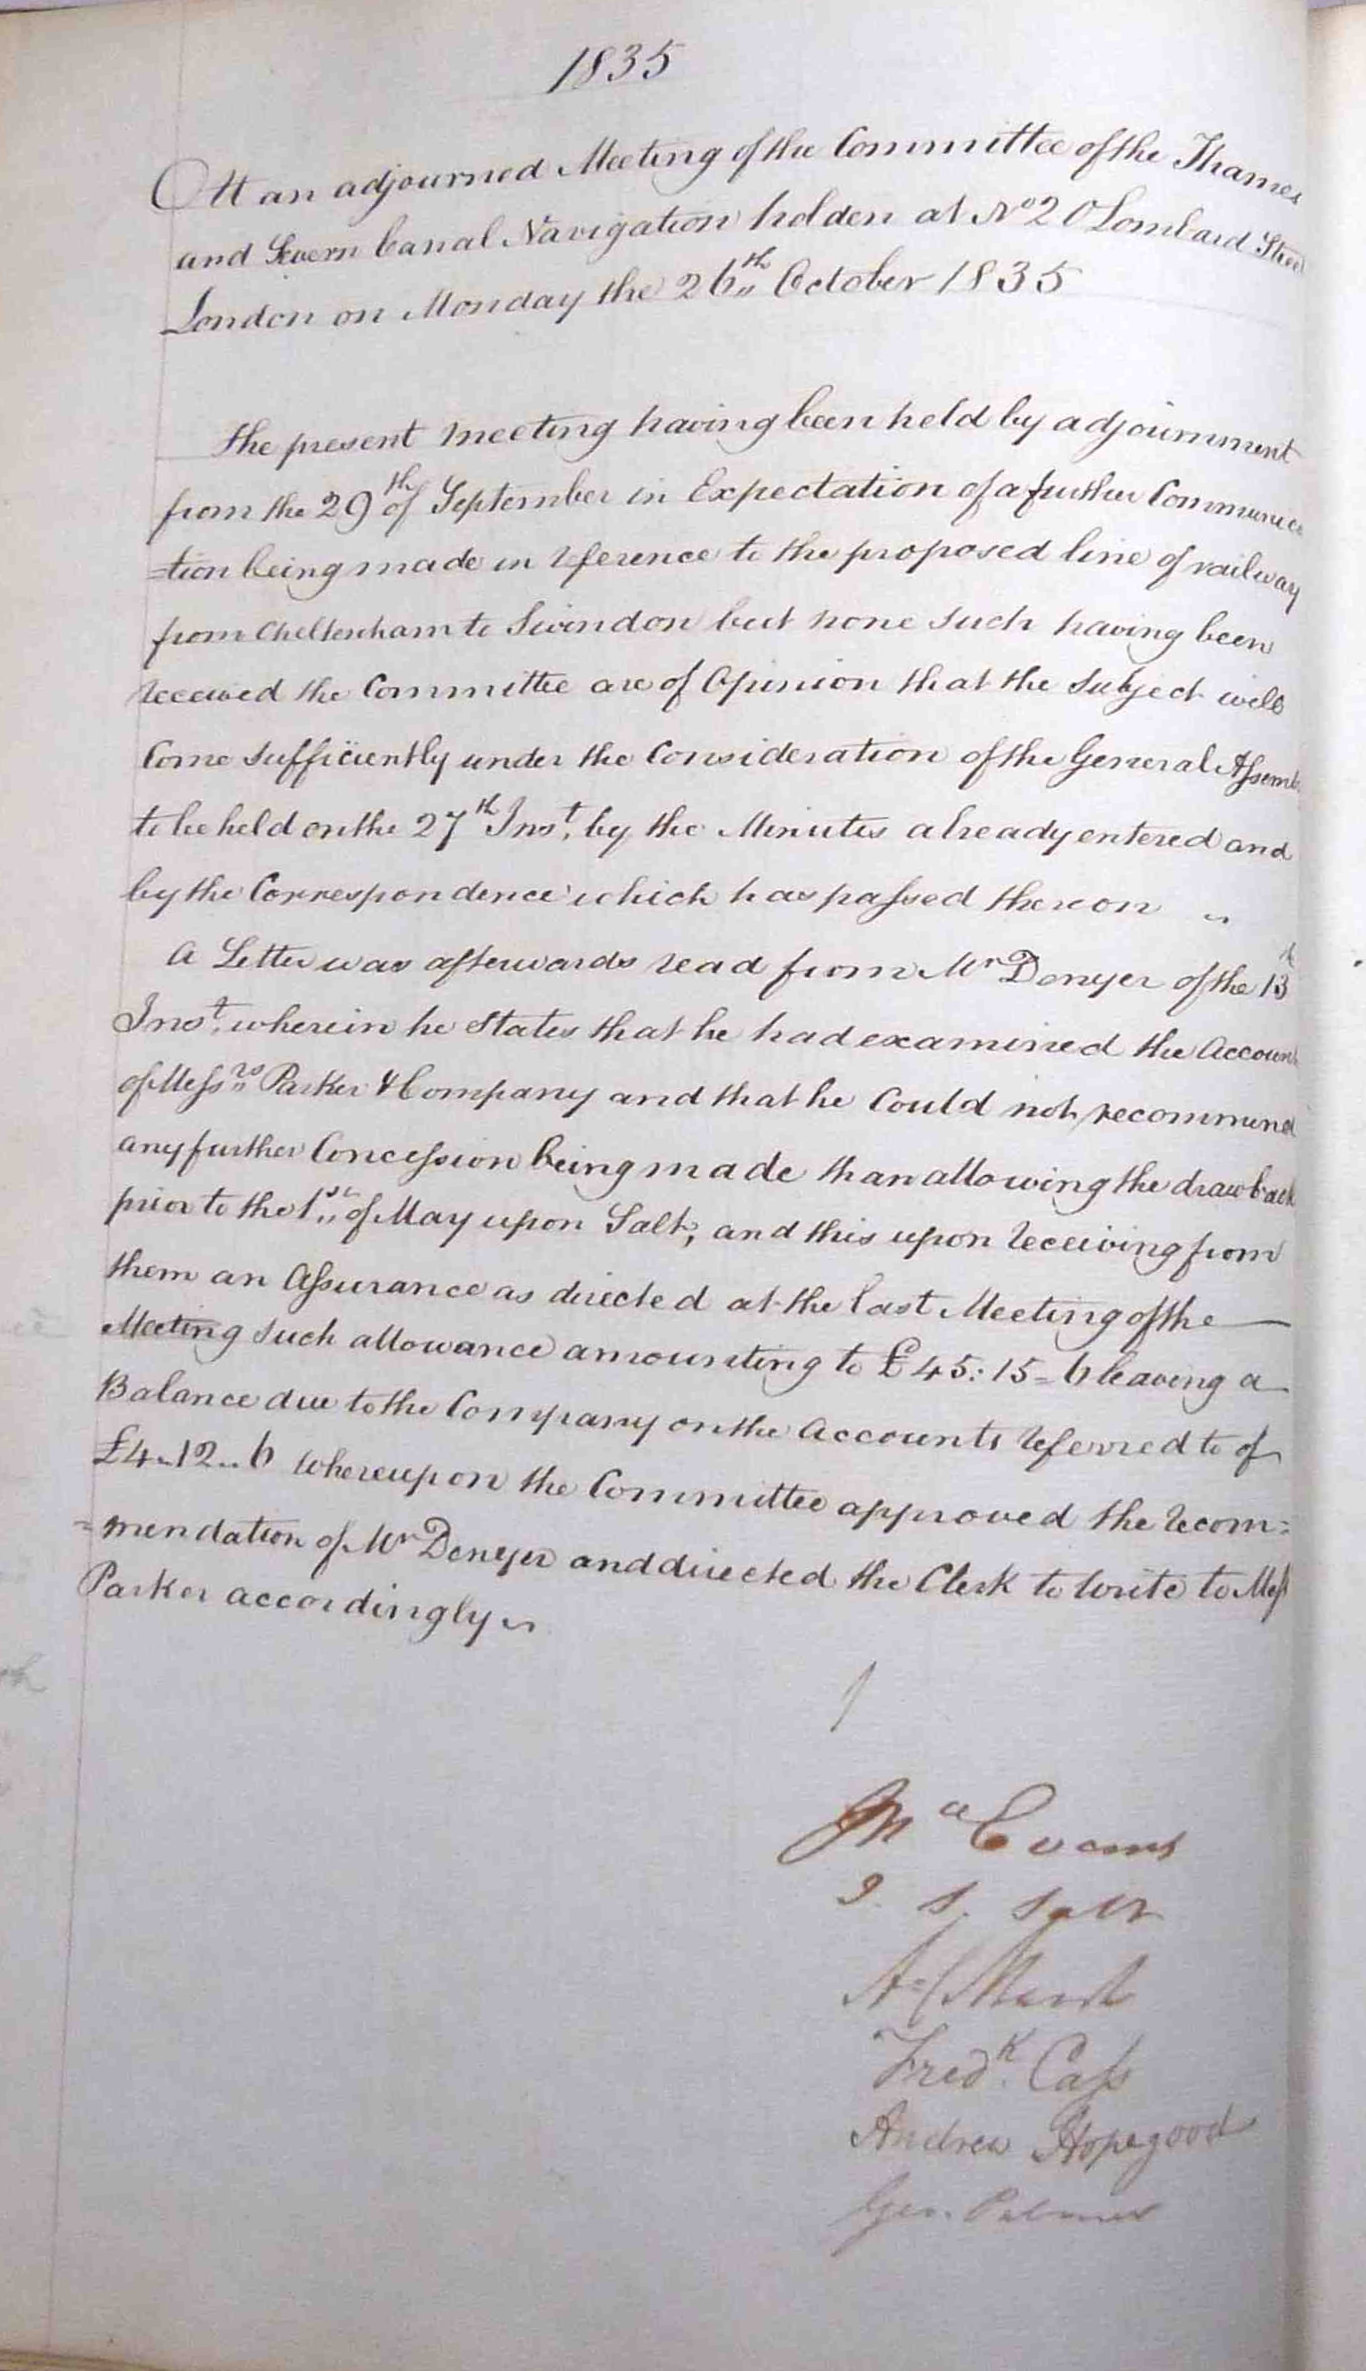 1835
At an adjourned Meeting of the Committee of the Thames
and Severn Canal Navigation holden at No 20 Lombard Street
London on Monday the 26th October 1835
The present meeting having been held by adjournment
from the 29th of September in Expectation of a further Communica
=tion being made in reference to the proposed line of railway
from Cheltenham to Swindon but none such having been
received the Committee are of Opinion that the subject will
Come sufficiently under the Consideration of the General Assemb
to be held on the 27th Inst. by the Minutes already entered and
by the Correspondence which has passed thereon "
A Letter was afterwards read from Mr Denyer of the 13th
Inst. wherein he states that he had examined the Account
of Messrs Parker & Company and that he Could not recommend
any further Concession being made than allowing the drawback
prior to the 1st of May upon Salt, and this upon receiving from
them an Assurance as directed at the last Meeting of the
Meeting such allowance amounting to £45:15=6 leaving a
Balance due to the Company on the Accounts referred to of
£4..12..6 whereupon the Committee approved the recom=
=mendation of Mr Denyer and directed the Clerk to write to Mess
Parker accordingly "
Ma Evans
J. S. Salt
Fredk. Cass
Andrew Hopegood
Geo. Palmer